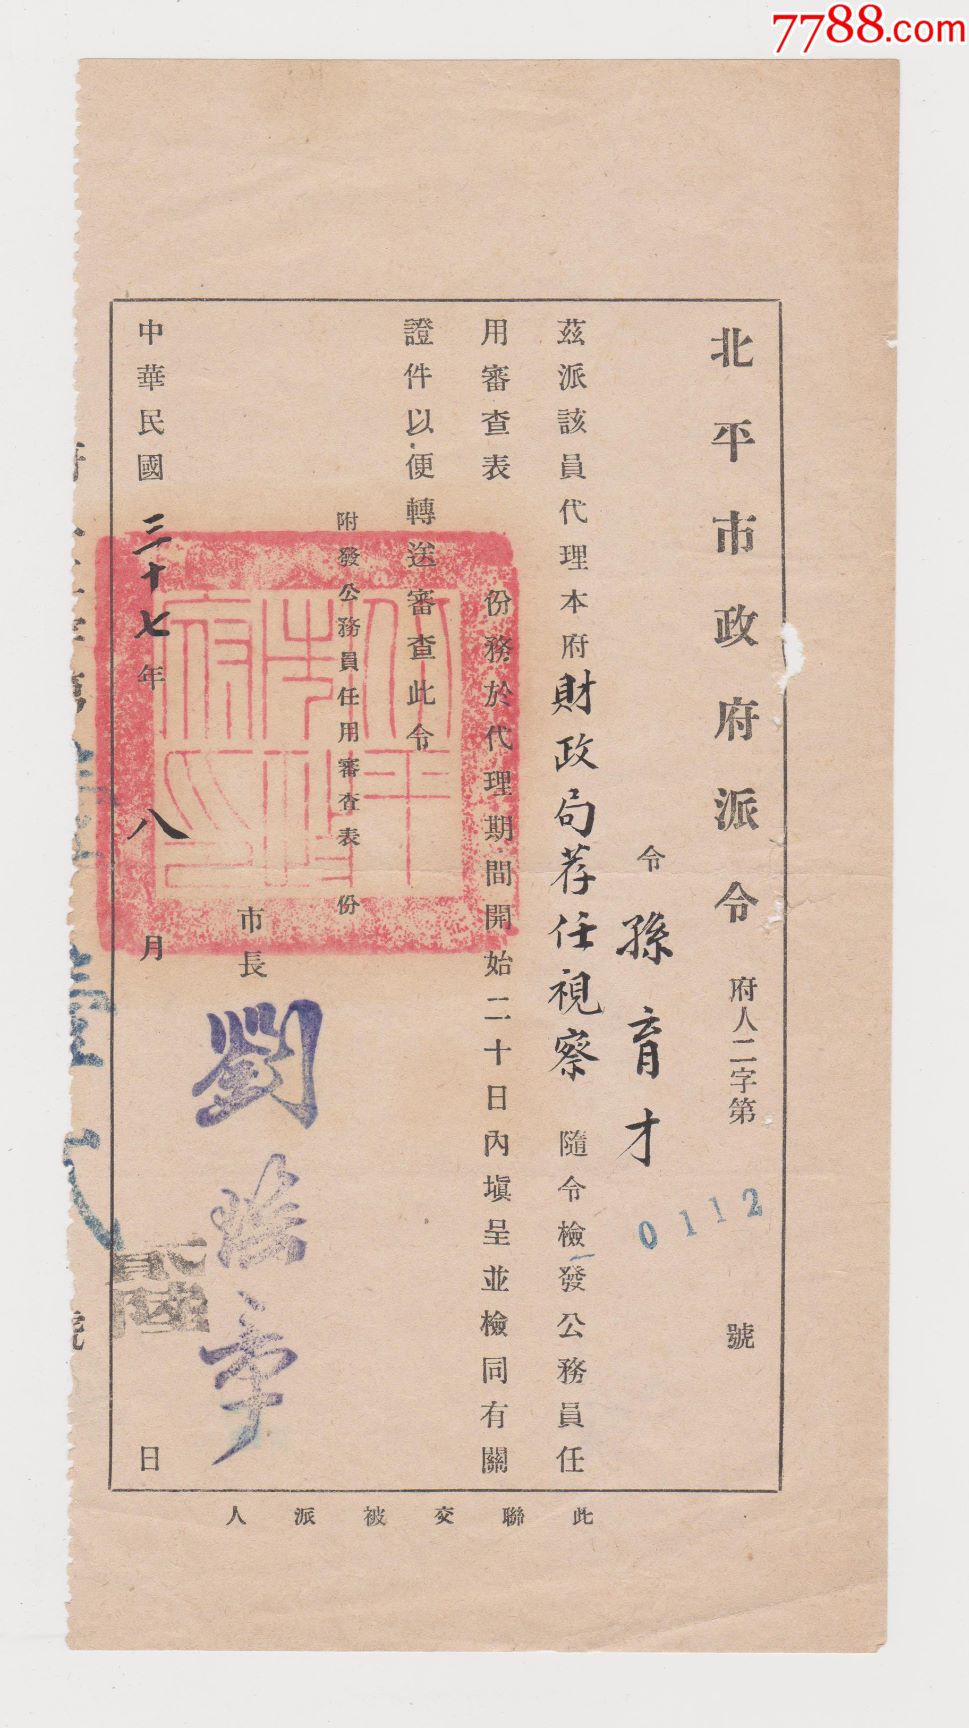 7788.com
北平市政府派令 府人二字第 0112 號
令 孫育才
茲派該員代理本府財政局荐任視察 隨令檢發公務員任
用審查表 份務於代理期間開始二十日內塡呈並檢同有關
證件以便轉送審查此令
附發公務員任用審查表 份
市長 劉瑤章
中華民國三十七年 八 月 貳陸 日
北平市政府印
此聯交被派人